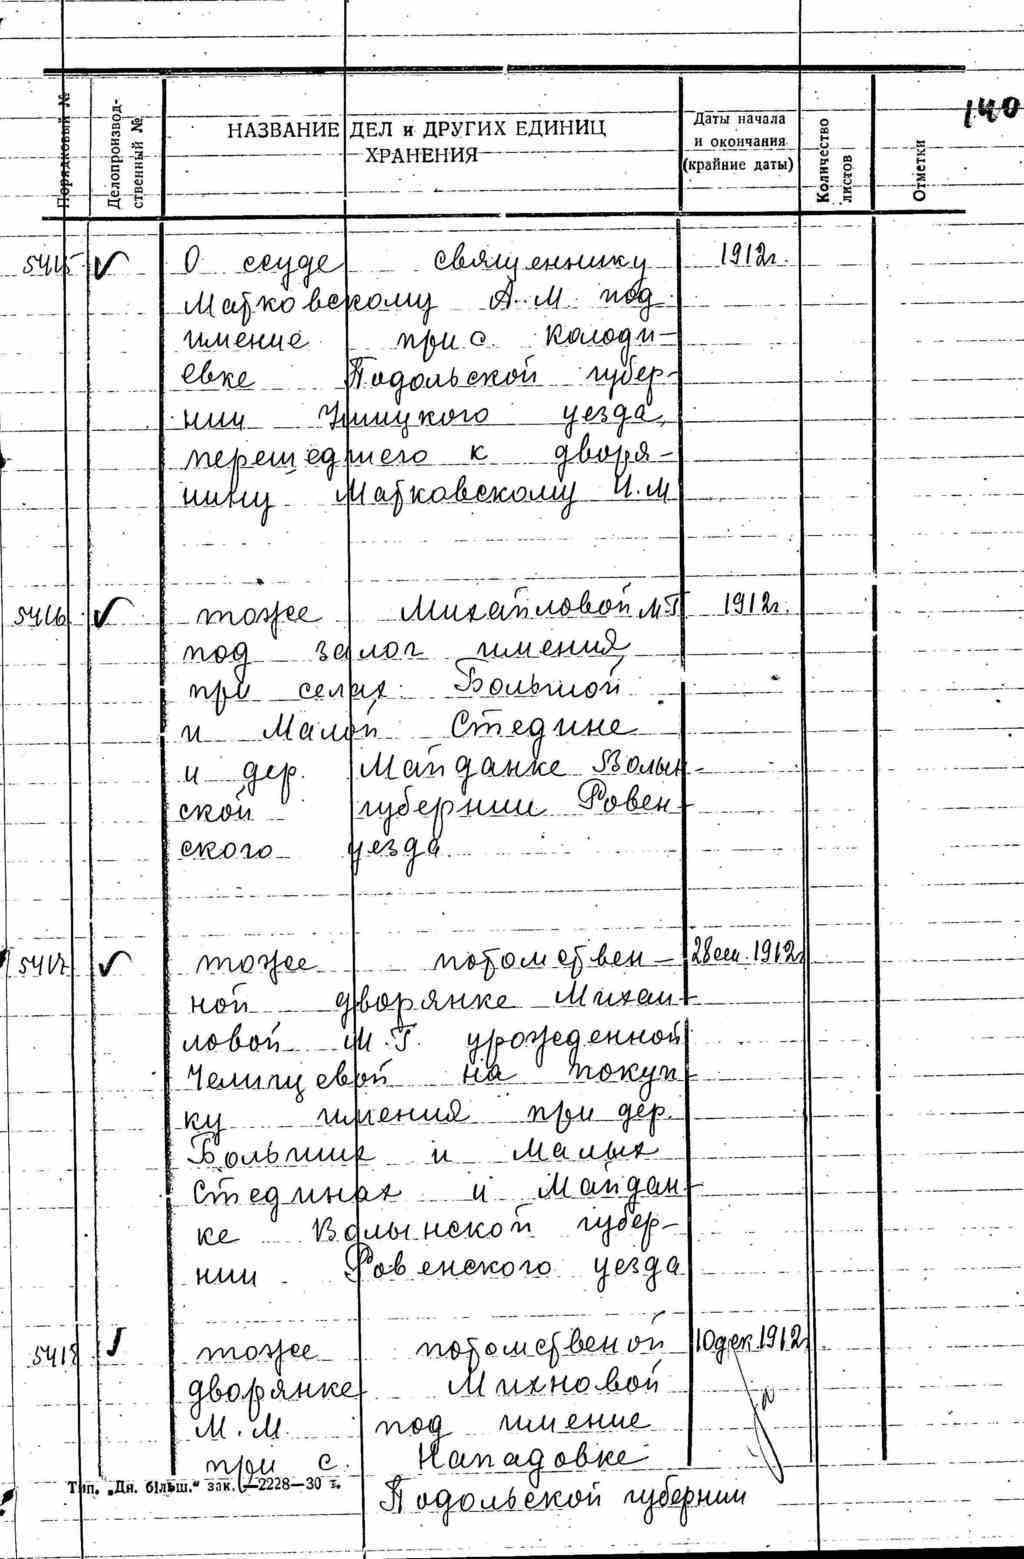 140
Порядковый №
Делопроизвод-
ственный №
НАЗВАНИЕ ДЕЛ и ДРУГИХ ЕДИНИЦ
ХРАНЕНИЯ
Даты начала
и окончания
(крайние даты)
Количество
листов
Отметки
5415 О ссуде священнику 1912г.
Матковскому А.М. под
имение при с. Колоди-
евке Подольской губер-
нии Ушицкого уезда,
перешедшего к дворя-
нину Матковскому И.М
5416 тоже Михайловой М.Г 1912г.
под залог имения,
при селах: Большой
и Малой Стедине
и дер. Майданке Волын-
ской губернии Ровен-
ского уезда.
5417 тоже потомствен- 28 сен. 1912г
ной дворянке Михай-
ловой М.Г. урожденной
Челищевой на покуп-
ку имения при дер.
Больших и Малых
Стединах и Майдан-
ке Волынской губер-
нии Ровенского уезда
5418 тоже потомственой 10 дек. 1912г
дворянке Михновой
М.М. под имение
при с. Нападовке
Подольской губернии
Тип. „Дн. більш." зак. —2228—30 т.